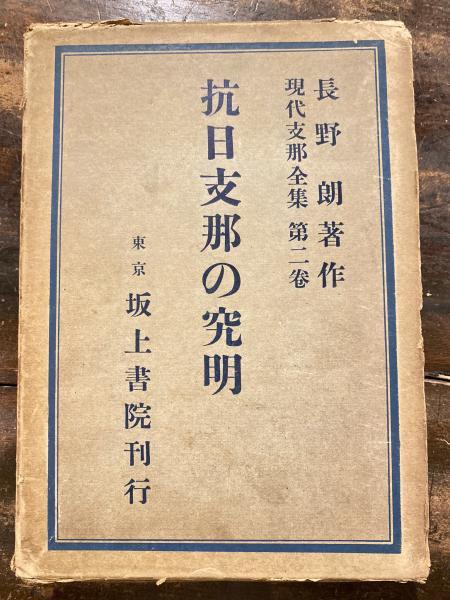 長野朗著作
現代支那全集 第二卷
抗日支那の究明
東京 坂上書院刊行